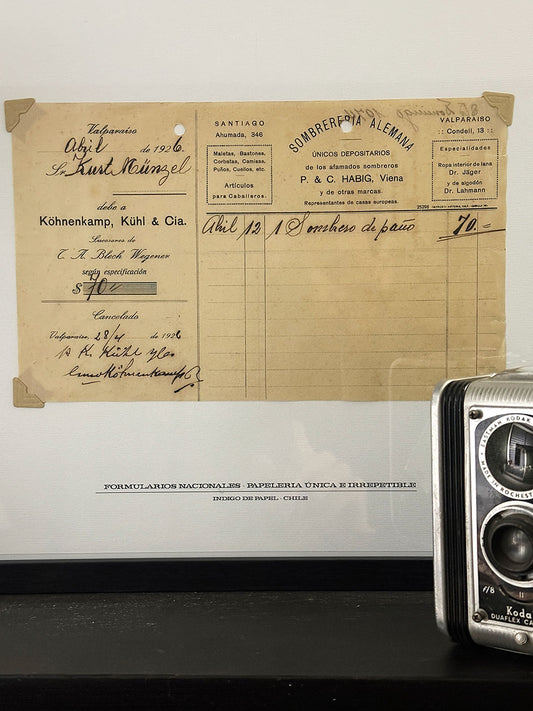 Valparaíso
Abril de 1926.
Sr. Kurt Münzel
debe a
Köhnenkamp, Kühl & Cia.
Sucesores de
C. A. Bloch Wegener
según especificación
$ 70 "
Cancelado
Valparaíso, 28/4 de 1926
SANTIAGO
Ahumada, 346
Maletas, Bastones,
Corbatas, Camisas,
Puños, Cuellos, etc.
Artículos
para Caballeros.
SOMBRERERIA ALEMANA
ÚNICOS DEPOSITARIOS
de los afamados sombreros
P. & C. HABIG, Viena
y de otras marcas.
Representantes de casas europeas.
VALPARAISO
:: Condell, 13 ::
Especialidades
Ropa interior de lana
Dr. Jäger
y de algodón
Dr. Lahmann
Abril 12 1 Sombrero de paño 70.=
FORMULARIOS NACIONALES · PAPELERIA ÚNICA E IRREPETIBLE
INDIGO DE PAPEL · CHILE
EASTMAN KODAK
ROCHESTE
f/8
Koda
DUAFLEX CA